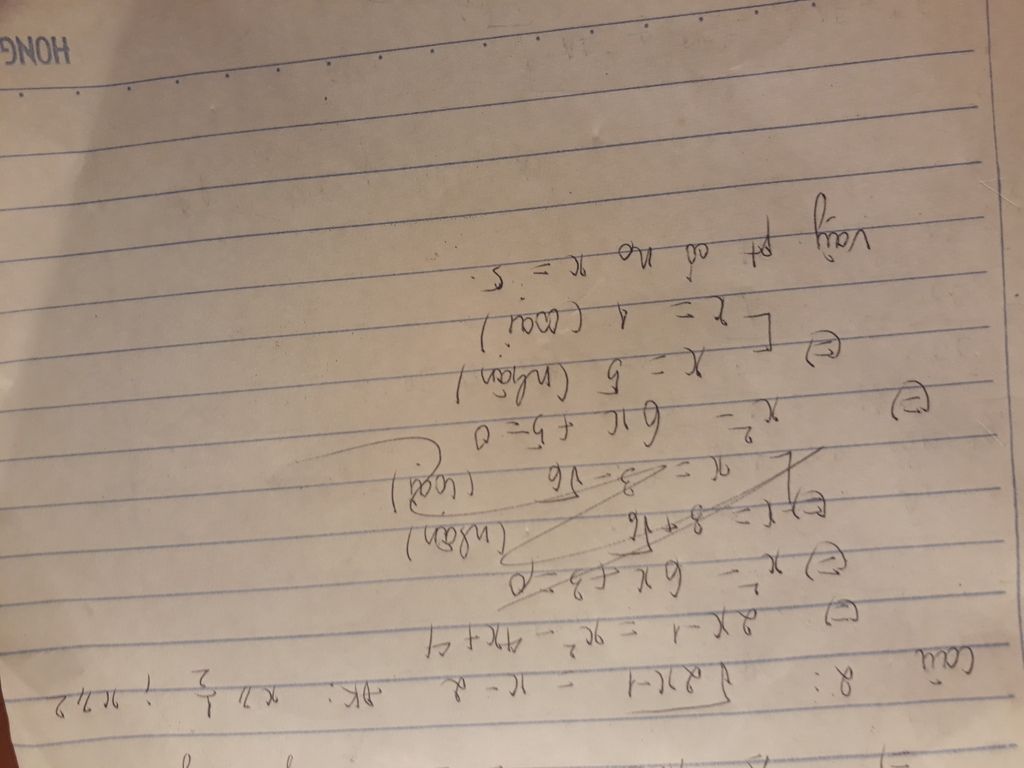 Câu 2: √2x-1 = x-2 ĐK: x ≥ 1/2 ; x ≥ 2
(=) 2x-1 = x² - 4x + 4
(=) x² - 6x + 3 = 0
(=) [ x = 3+√6 (nhận)
x = 3-√6 (loại)
(=) x² - 6x + 5 = 0
(=) [ x = 5 (nhận)
x = 1 (loại)
Vậy pt có no x = 5.
HONG